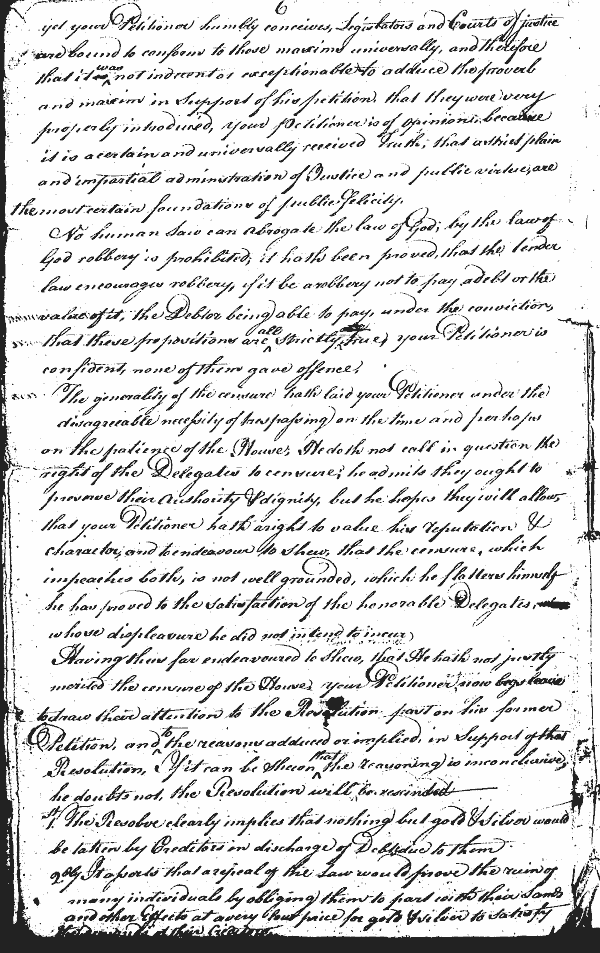 6
yet your Petitioner humbly conceives, Legislators and Courts of justice
are bound to conform to those maxims universally, and therefore
that it was not indecent or exceptionable to adduce the proverb
and maxim in Support of his petition, that they were very
properly introduced, your Petitioner is of opinion; because
it is a certain and universally received Truth; that a strict plain
and impartial administration of Justice and public virtue, are
the most certain foundations of public felicity.
No human Law can abrogate the law of God; by the Law of
God robbery is prohibited; it hath been proved, that the tender
law encourages robbery, if it be a robbery not to pay a debt or the
value of it, the Debtor being able to pay, under the conviction,
that these propositions are all strictly true, your Petitioner is
confident, none of them gave offence.
The generality of the censure hath laid your Petitioner under the
disagreeable necessity of trespassing on the time and perhaps
on the patience of the House; He doth not call in question the
right of the Delegates to censure; he admits they ought to
preserve their authority & dignity, but he hopes they will allow
that your Petitioner hath a right to value his reputation &
character, and to endeavour to shew, that the censure, which
impeaches both, is not well grounded, which he flatters himself
he has proved to the satisfaction of the honorable Delegates,
whose displeasure he did not intend to incur.
Having thus far endeavoured to Shew, that He hath not justly
merited the censure of the House, your Petitioner now begs leave
to draw their attention to the Resolution past on his former
Petition, and to the reasons adduced or implied, in Support of that
Resolution, If it can be shewn that the reasoning is inconclusive,
he doubts not, the Resolution will be rescinded
1st. The Resolve clearly implies that nothing but gold & Silver would
be taken by Creditors in discharge of Debts due to them
2dly It asserts that a repeal of the Law would prove the ruin of
many individuals by obliging them to part with their Lands
and other Effects at a very low price for gold & silver to satisfy
the demands of their Creditors